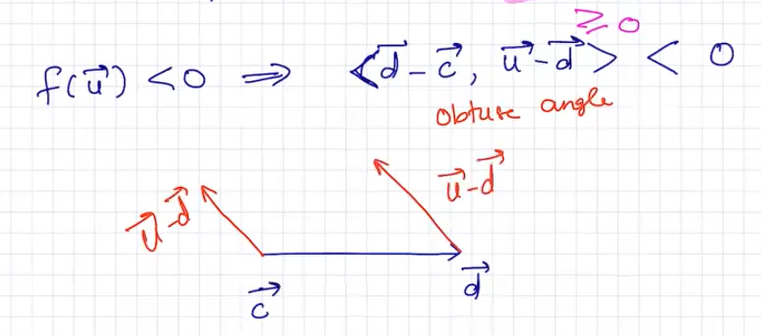 ≥ 0
f(u⃗) < 0 ⇒ <d⃗ - c⃗, u⃗ - d⃗> < 0
obtuse angle
u⃗ - d⃗
u⃗ - d⃗
c⃗
d⃗